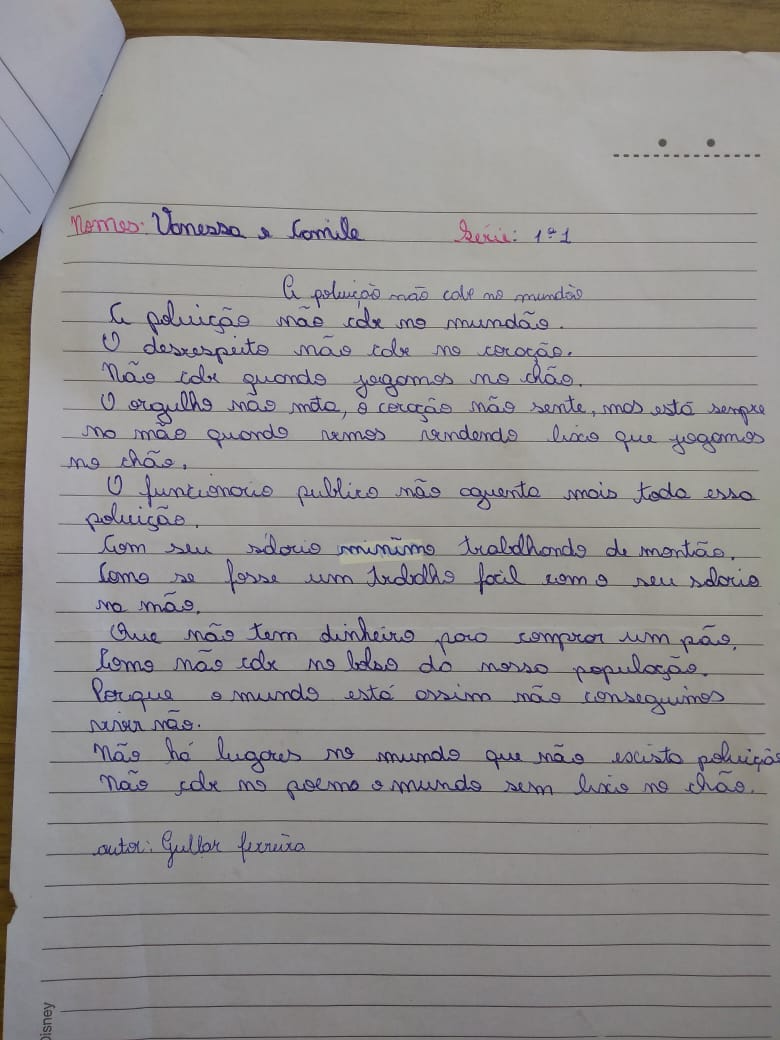 Nomes: Vanessa e Camile Série: 1º1
A poluição não cabe no mundão
A poluição não cabe no mundão.
O desrespeito não cabe no coração.
Não cabe quando jogamos no chão.
O orgulho não mata, o coração não sente, mas está sempre
na mão quando vemos vendendo lixo que jogamos
no chão.
O funcionario publico não aguenta mais toda essa
poluição.
Com seu salario minimo trabalhando de montão.
Como se fosse um trabalho facil com o seu salario
na mão.
Que não tem dinheiro para comprar um pão.
Como não cabe no bolso da nossa população.
Porque o mundo está assim não conseguimos
viver não.
Não há lugares no mundo que não escista poluição
Não cabe no poema o mundo sem lixo no chão.
autor: Gullar ferreira
Disney